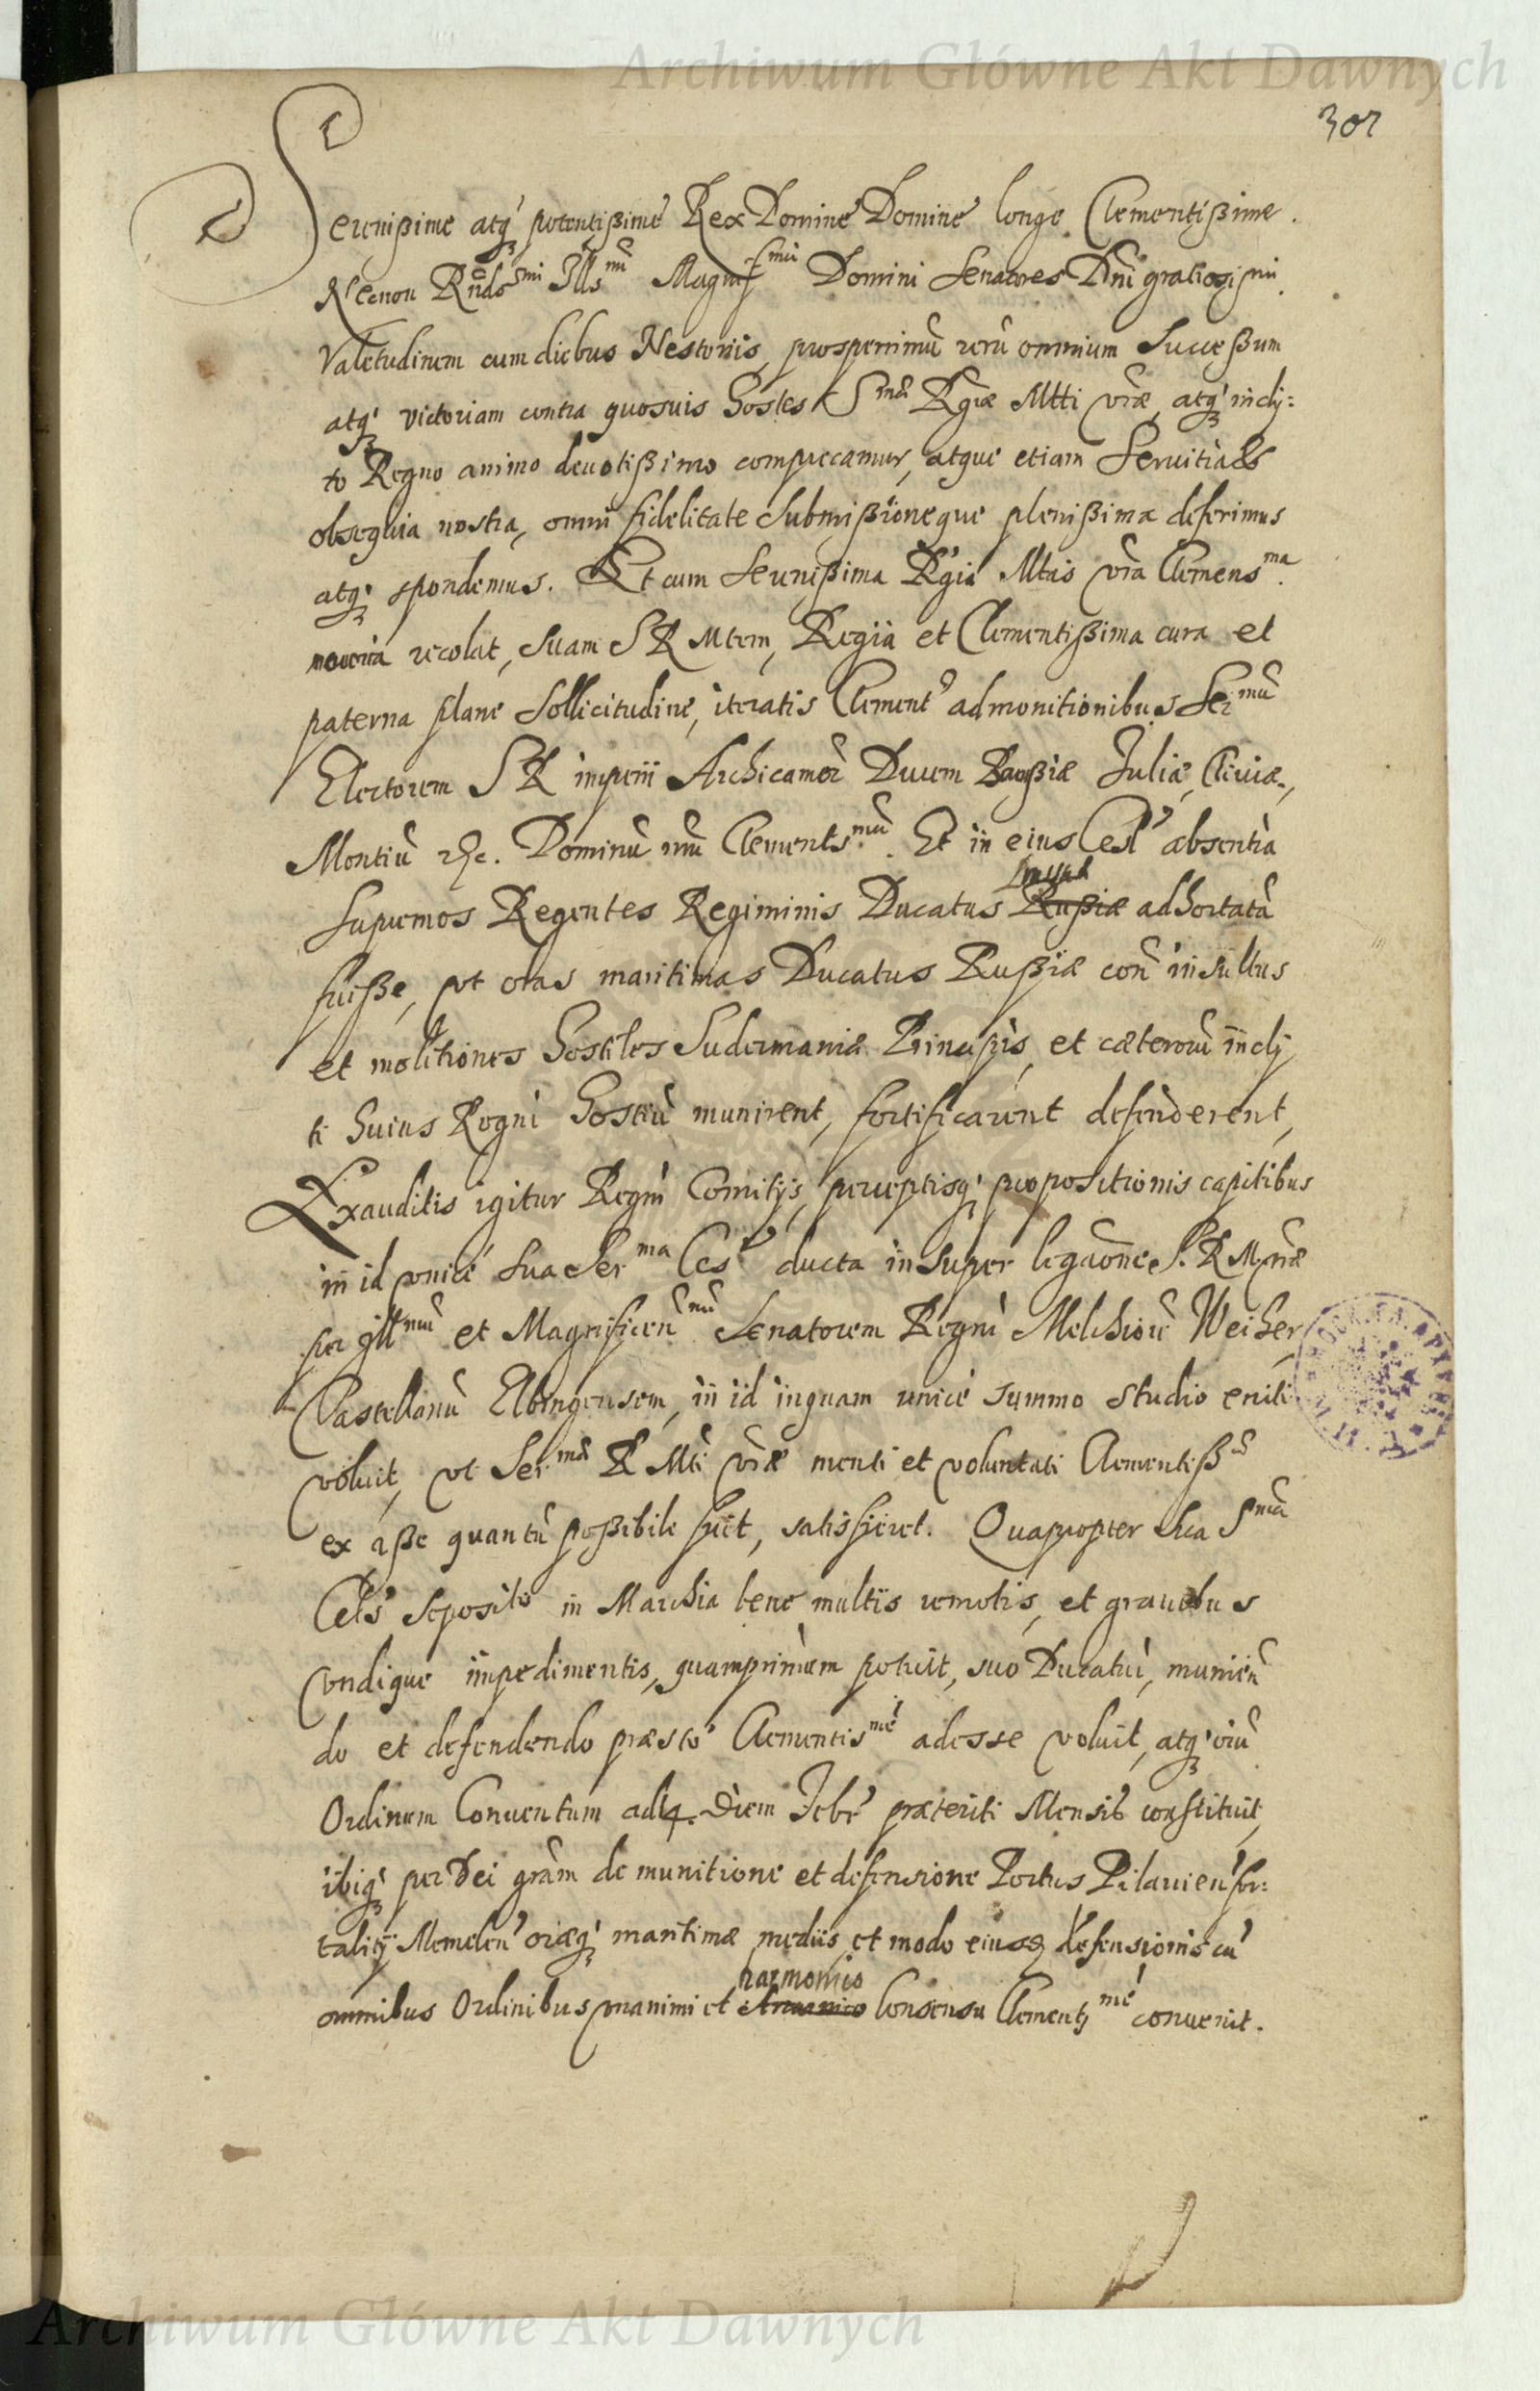 Archiwum Główne Akt Dawnych
307
Serenißime atq́ꝫ potentißime Rex Domine Domine longe Clementißime.
Necnon Rnds^mi Ills^mi Magnif^mi Domini Senatores Dni gratiosismi.
Valetudinem cum diebus Nestoris, prosperrimũ rerũ omnium Succeßum
atq́ꝫ victoriam contra quosuis hostes S^mæ Rgiæ Mtti vræ, atq́ꝫ incly:
to Regno animo deuotißimo comprecamur, atque etiam Seruitia &
obsequia nostra, omni fidelitate Submißioneque plenißima deferimus
atq́ꝫ spondemus. Et cum Serenißima Rgia Mtas vra Clemens^ma.
recolat, Suam S R Mtem, Regia et Clementißima cura et
paterna plane Sollicitudine, iteratis Clement' admonitionibus Ser^mũ
Electorem S R imperii Archicamer Ducem Borußiæ Juliæ, Cliuiæ,
Montiũ &c. Dominũ nrũ Clements^mũ. Et in eius Cels' absentia
Supremos Regentes Regiminis Ducatus Rußiæ adhortatã
fuiße, vt oras maritimas Ducatus Rußiæ con insultus
et molitiones hostiles Sudermaniæ Principis, et cæterorũ incly
ti huius Regni hostiũ munirent, fortificarent defenderent,
Exauditis igitur Regni Comitijs, perceptisq́ꝫ propositionis capitibus
in id vnicè sua Ser^ma Cels' ducta insuper legaõne S. R M vræ
per Ill^mũ et Magnificen^mũ Senatorem Regni Melchiorẽ Weiher
Castellanũ Elbingensem, in id inquam unicè summo studio eniti
voluit, vt Ser^mæ R Mti vræ menti et voluntati Clementiß^æ
ex aße quantũ poßibile fuit, satisfieret. Quapropter Sua S^ma
Cels' Sepositis in Marchia bene multis remotis, et grauibus
vndique impedimentis, quamprimum potuit, suo Ducatui, munien
do et defendendo præsto Clementis^mè adesse voluit, atq́ꝫ oiũ
Ordinum Conuentum ad 14. diem Febr' præteriti Mensis constituit,
ibiq́ꝫ per Dei grãm de munitione et defensione Portus Pilauien' for:
talitij Memelen' oræq́ꝫ maritimæ mediis, et modo eiusꝗ defensionis cũ
harmonico
omnibus Ordinibus vnanimi et Consensu Clementis^mè conuenit.
Archiwum Główne Akt Dawnych